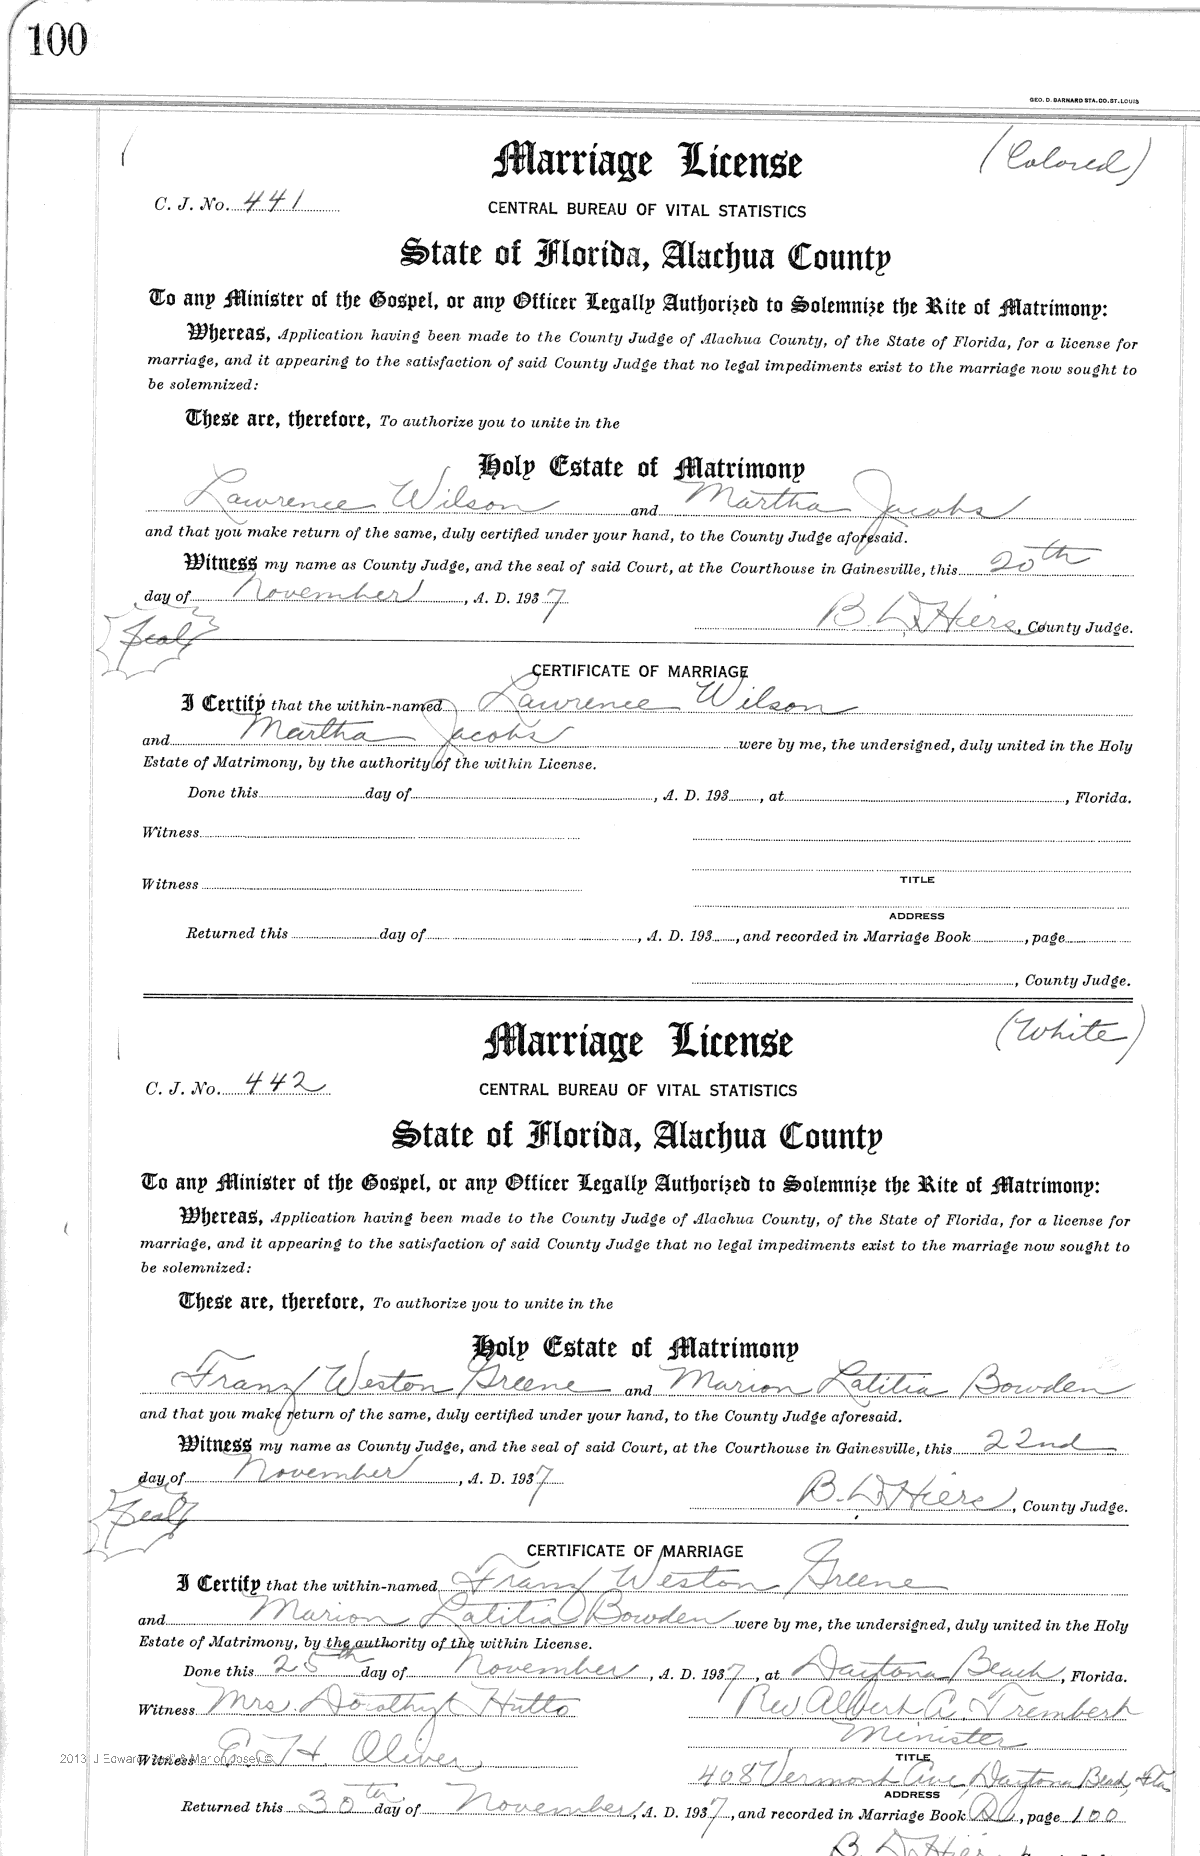 100
GEO. D. BARNARD STA. CO. ST. LOUIS
Marriage License (Colored)
C. J. No. 441
CENTRAL BUREAU OF VITAL STATISTICS
State of Florida, Alachua County
To any Minister of the Gospel, or any Officer Legally Authorized to Solemnize the Rite of Matrimony:
Whereas, Application having been made to the County Judge of Alachua County, of the State of Florida, for a license for
marriage, and it appearing to the satisfaction of said County Judge that no legal impediments exist to the marriage now sought to
be solemnized:
These are, therefore, To authorize you to unite in the
Holy Estate of Matrimony
Lawrence Wilson and Martha Jacobs
and that you make return of the same, duly certified under your hand, to the County Judge aforesaid.
Witness my name as County Judge, and the seal of said Court, at the Courthouse in Gainesville, this 20th
day of November, A. D. 1937
B. D. Hiers, County Judge.
Seal
CERTIFICATE OF MARRIAGE
I Certify that the within-named Lawrence Wilson
and Martha Jacobs were by me, the undersigned, duly united in the Holy
Estate of Matrimony, by the authority of the within License.
Done this day of , A. D. 193 , at , Florida.
Witness
Witness
TITLE
ADDRESS
Returned this day of , A. D. 193 , and recorded in Marriage Book , page
, County Judge.
Marriage License (White)
C. J. No. 442
CENTRAL BUREAU OF VITAL STATISTICS
State of Florida, Alachua County
To any Minister of the Gospel, or any Officer Legally Authorized to Solemnize the Rite of Matrimony:
Whereas, Application having been made to the County Judge of Alachua County, of the State of Florida, for a license for
marriage, and it appearing to the satisfaction of said County Judge that no legal impediments exist to the marriage now sought to
be solemnized:
These are, therefore, To authorize you to unite in the
Holy Estate of Matrimony
Franz Weston Greene and Marion Latitia Bowden
and that you make return of the same, duly certified under your hand, to the County Judge aforesaid.
Witness my name as County Judge, and the seal of said Court, at the Courthouse in Gainesville, this 22nd
day of November, A. D. 1937
B. D. Hiers, County Judge.
Seal
CERTIFICATE OF MARRIAGE
I Certify that the within-named Franz Weston Greene
and Marion Latitia Bowden were by me, the undersigned, duly united in the Holy
Estate of Matrimony, by the authority of the within License.
Done this 25th day of November, A. D. 1937, at Daytona Beach, Florida.
Witness Mrs. Dorothy Hutto Rev Albert A. Trembert
Minister
Witness H. Oliver TITLE
2013 J Edward & Marion Josey ©
408 Vermont Ave, Daytona Beach, Fla
ADDRESS
Returned this 30th day of November, A. D. 1937, and recorded in Marriage Book , page 100
B. D. Hiers